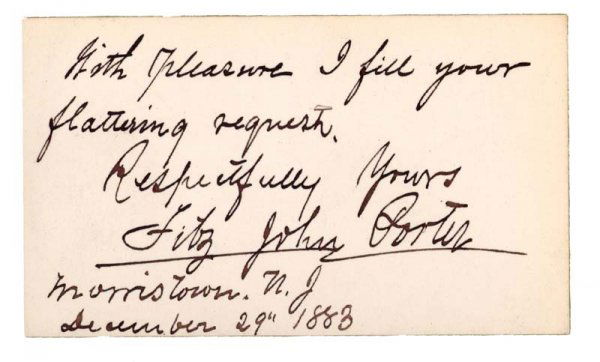 With pleasure I fill your
flattering request.
Respectfully Yours
Fitz John Porter
Morristown. N. J
December 29" 1883